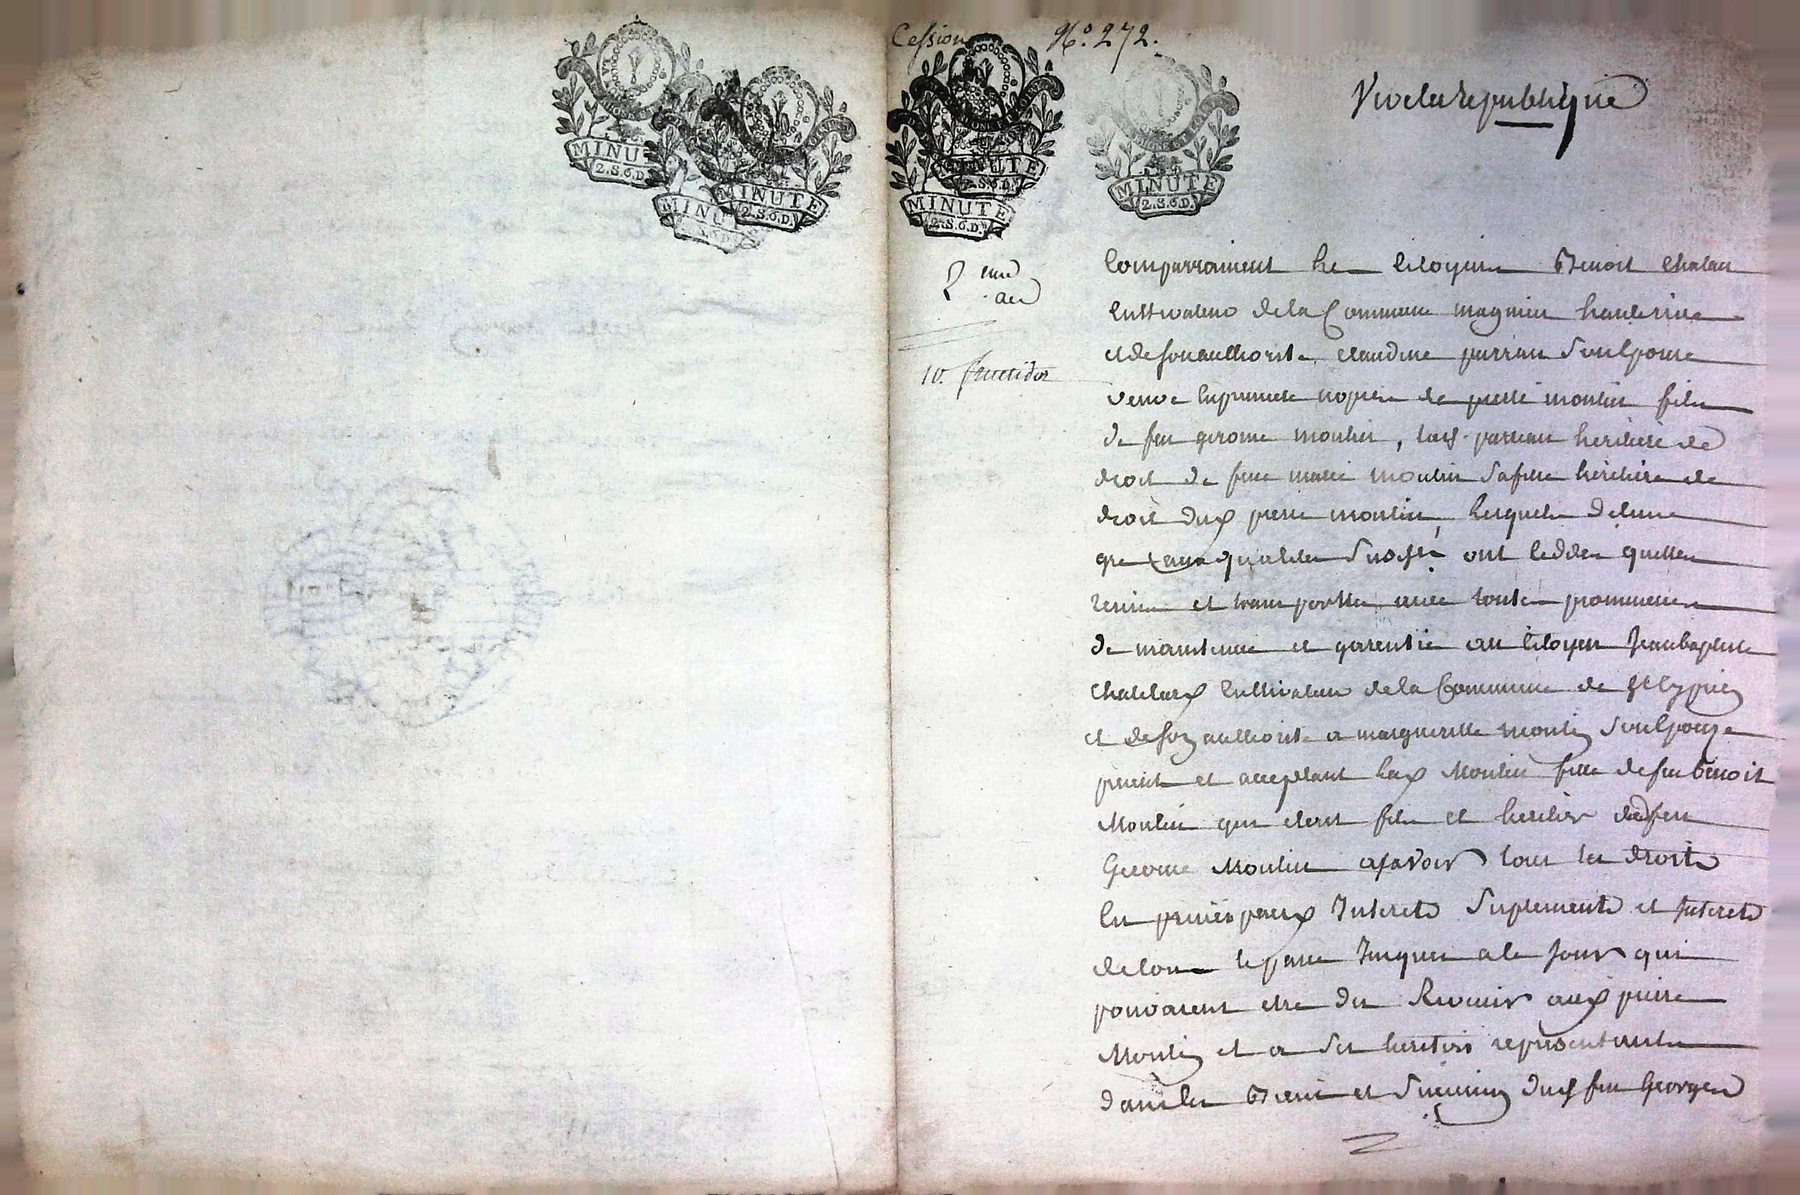 Cession N.º 272.
Vive la republique
MINUTE
2.S.6.D.
MINUTE
2.S.6.D.
MINUTE
2.S.6.D.
MINUTE
2.S.6.D.
2 eme
10. fructidor
Comparraissent le Citoyen Benoit Chalan
Cultivateur de la Commune magnieu hauterive
et de son authorité claudine parran son epouse
veuve en premiere nopces de pierre moulin fils
de feu gerome moulin, lad. parran heritiere de
droit de feue marie moulin sa fille heritiere de
droit dud pierre moulin, lesquels
qualités ont cedder quitter
remis et transportter avec toutes promesses
de maintenue et garentie au Citoyen Jean baptiste
Cultivateur de la Commune de St Cyprien
et de son authorité a margueritte moulin son epouse
present et acceptant lad Moulin fille de feu benoit
Moulin qui etait fils et heritier de feu
Gerome Moulin a savoir tous les droits
en principaux Interets Suplements et Interets
de tout le passe Jusques a ce Jour qui
pouvaient etre du Revenir aud pierre
Moulin et a ses heritiers representants
dans les Biens et Succession dud feu George